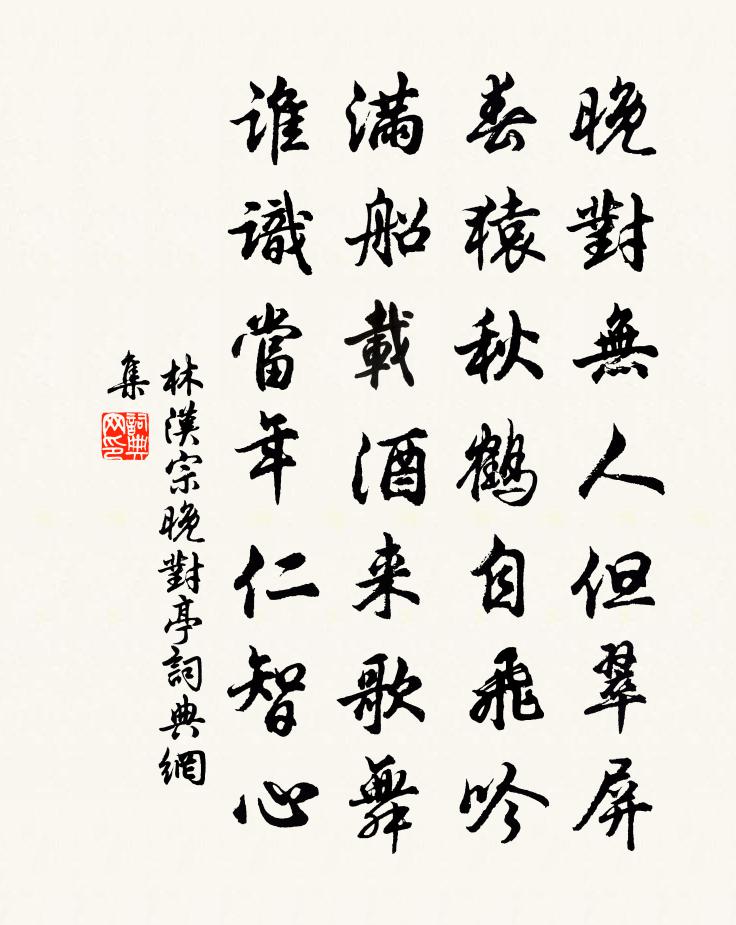 晚對無人但翠屏
春猿秋鶴自飛吟
滿船載酒来歌舞
誰識當年仁智心
林漢宗晚對亭詞典網
集
詞典
网印